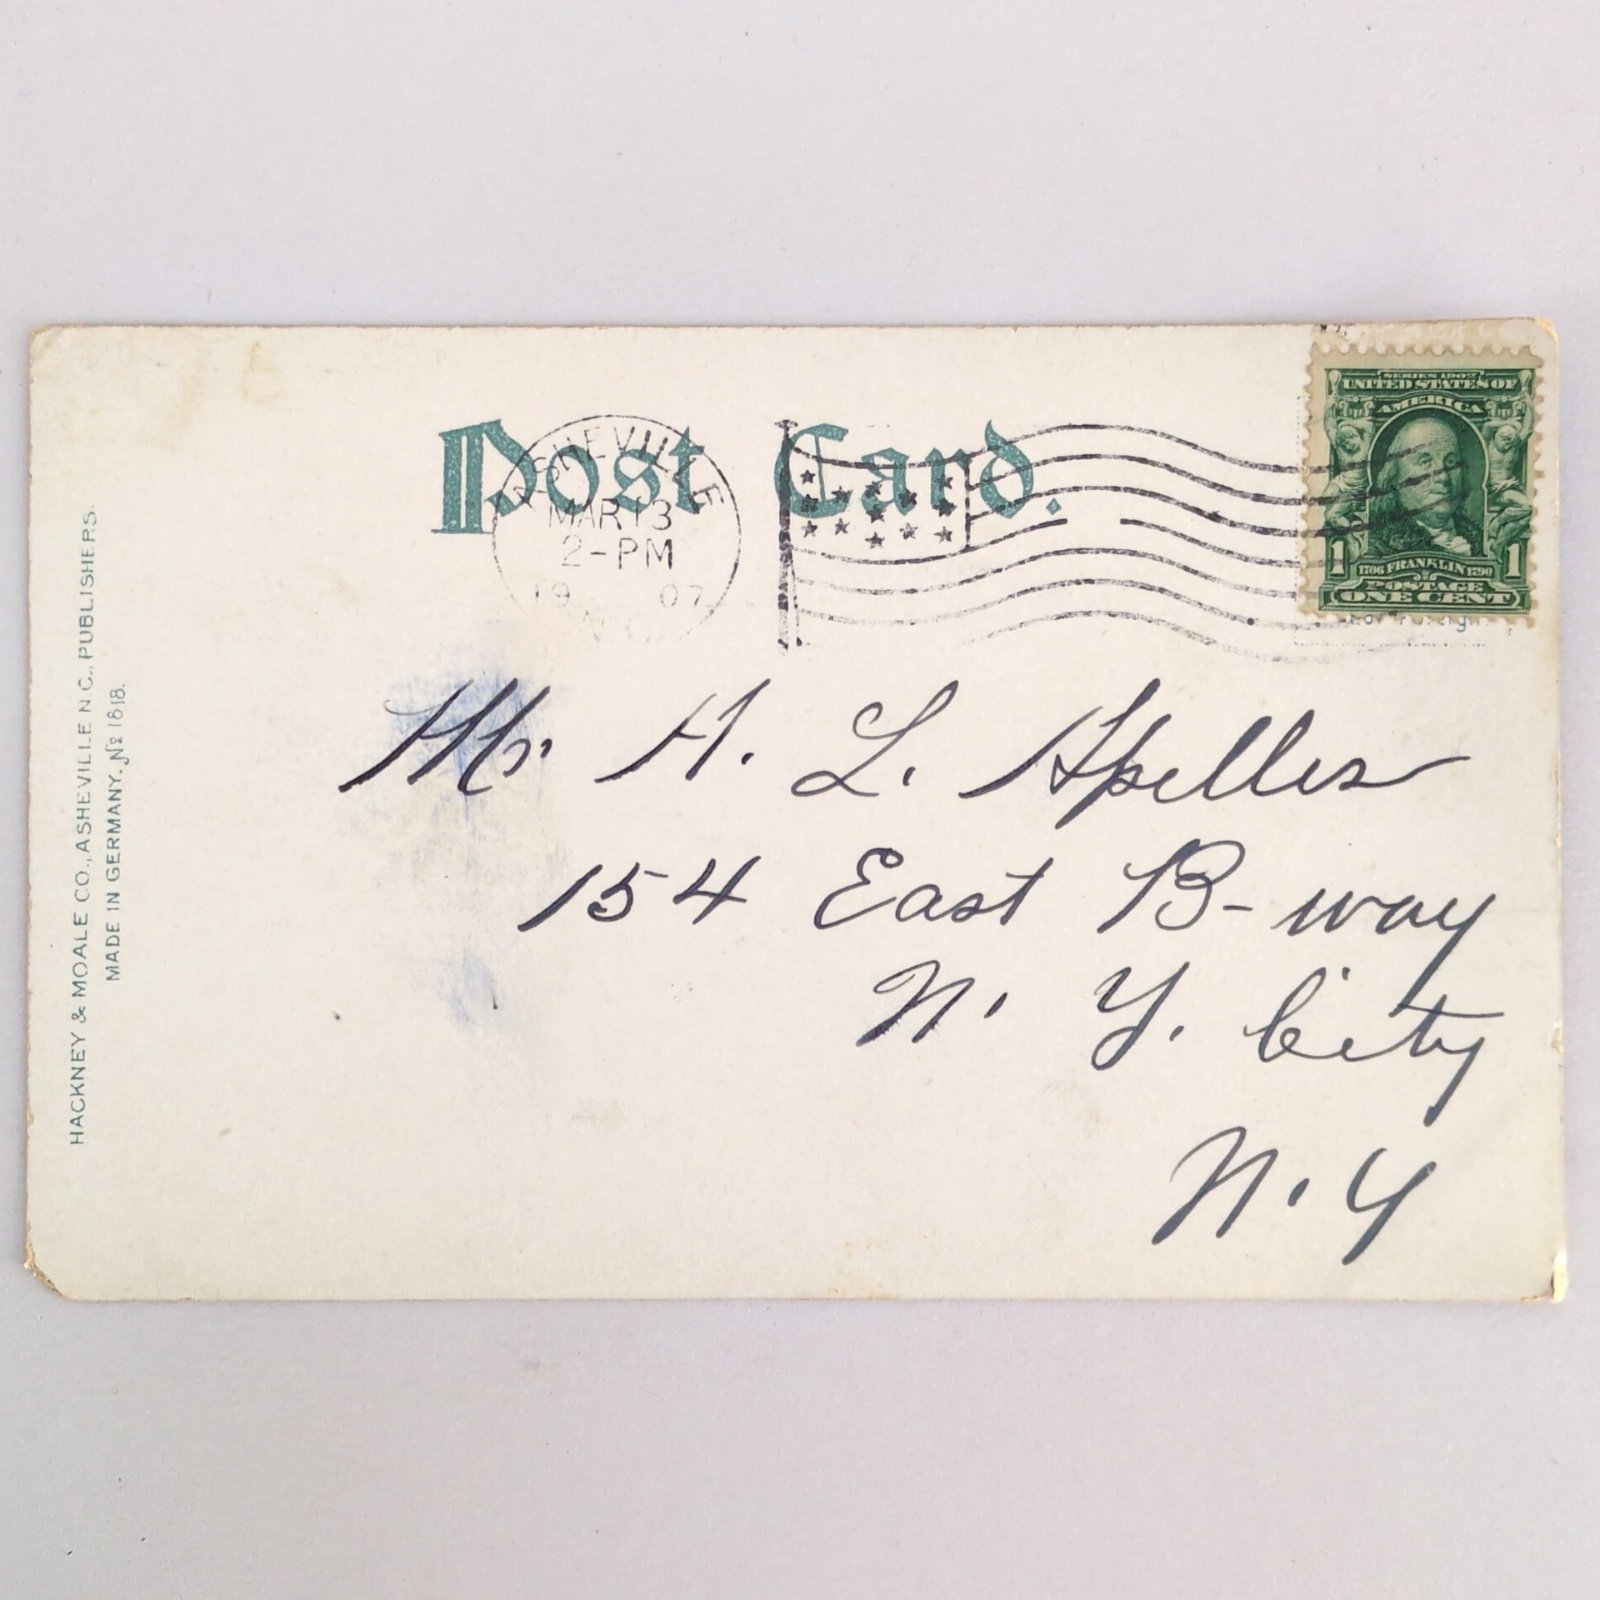 Post Card.
ASHEVILLE
MAR 13
2-PM
1907
N.C.
SERIES 1902
UNITED STATES OF
AMERICA
1 1706 FRANKLIN 1790 1
POSTAGE
ONE CENT
Mr. H. L. Apelles
154 East B-way
N. Y. City
N. Y
HACKNEY & MOALE CO., ASHEVILLE N.C., PUBLISHERS.
MADE IN GERMANY. No 1818.